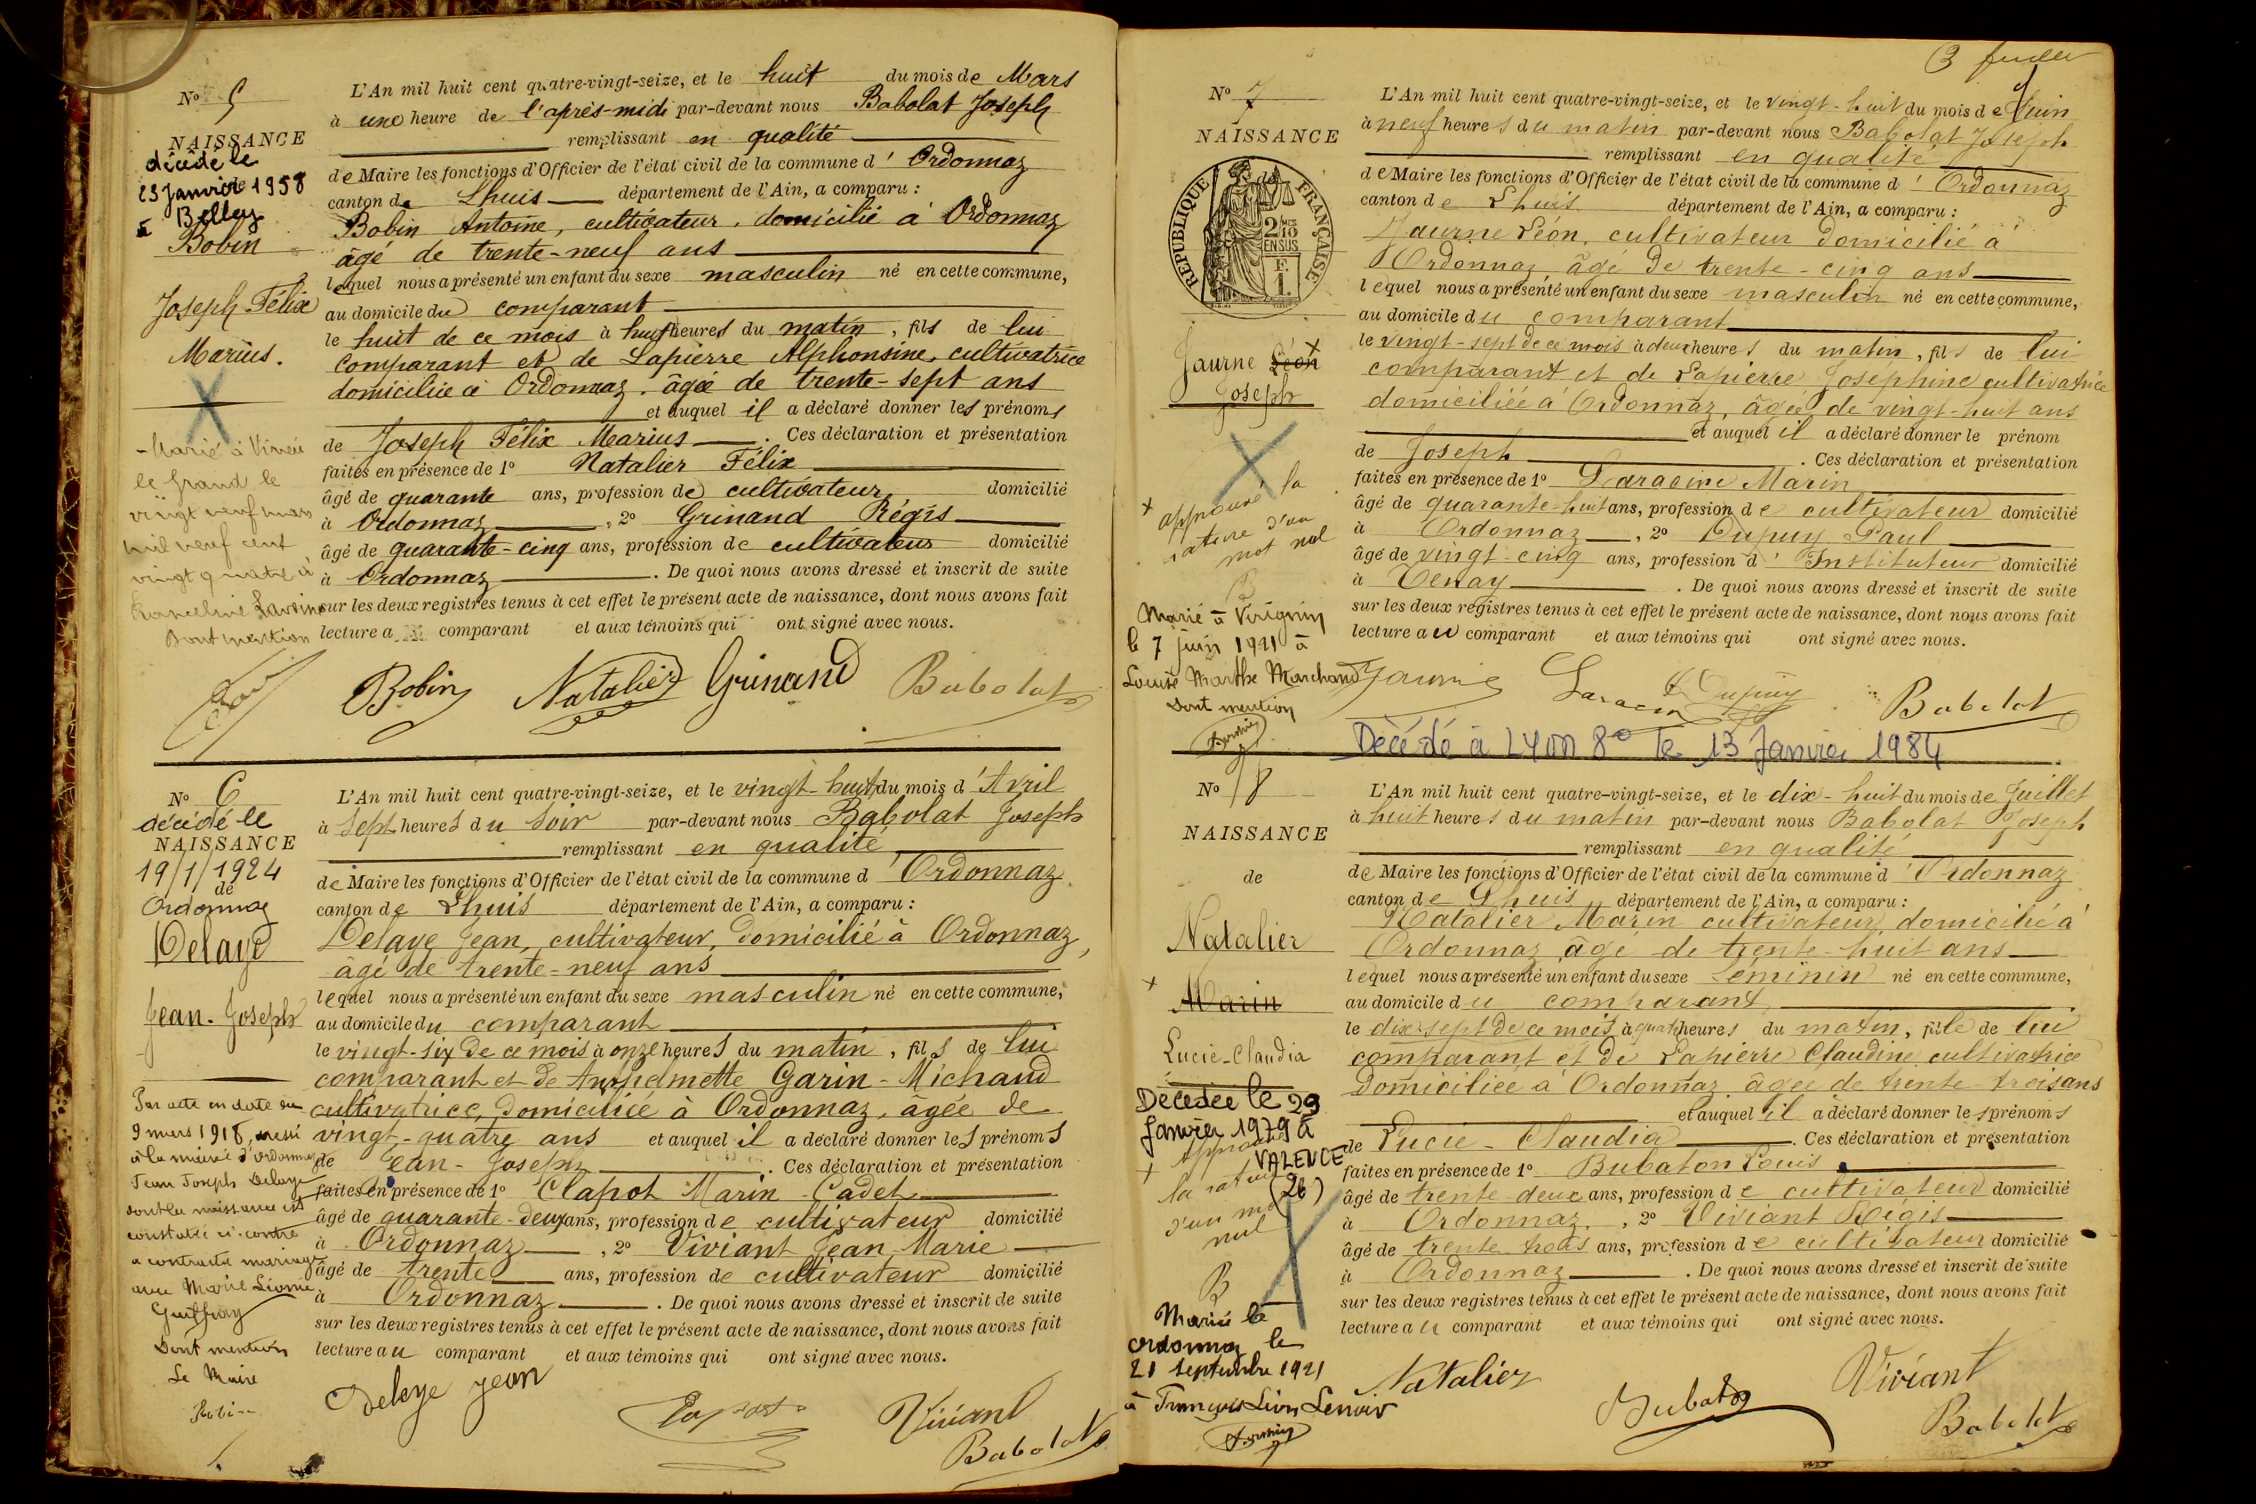 N° 5
NAISSANCE
décédé le
23 Janvier 1958
à Belley
Bobin
Joseph Félix
Marius.
- Marié à Virieu
le grand le
vingt neuf mars
mil neuf cent
vingt quatre à
Dont mention
L'An mil huit cent quatre-vingt-seize, et le huit du mois de Mars
à une heure de l'après-midi par-devant nous Babolat Joseph
remplissant en qualité
de Maire les fonctions d'Officier de l'état civil de la commune d' Ordonnaz
canton de Lhuis département de l'Ain, a comparu :
Bobin Antoine, cultivateur, domicilié à Ordonnaz
âgé de trente-neuf ans
lequel nous a présenté un enfant du sexe masculin né en cette commune,
au domicile du comparant
le huit de ce mois à heures du matin, fils de lui
comparant et de Lapierre Alphonsine, cultivatrice
domiciliée à Ordonnaz, âgée de trente-sept ans
et auquel il a déclaré donner les prénoms
de Joseph Félix Marius. Ces déclaration et présentation
faites en présence de 1° Natalier Félix
âgé de quarante ans, profession de cultivateur domicilié
à Ordonnaz, 2° Grinand Régis
âgé de quarante-cinq ans, profession de cultivateur domicilié
à Ordonnaz. De quoi nous avons dressé et inscrit de suite
sur les deux registres tenus à cet effet le présent acte de naissance, dont nous avons fait
lecture au comparant et aux témoins qui ont signé avec nous.
Bobin Natalier Grinand Babolat
N° 6
décédé le
NAISSANCE
19/1/1924
de
Ordonnaz
Delaye
Jean-Joseph
Par acte en date du
9 mars 1918, dressé
à la mairie d'Ordonnaz
Jean Joseph Delaye
dont la naissance est
constatée ci-contre
a contracté mariage
avec Marie Léonie
Guiffray
Dont mention
Le Maire
Bobin
L'An mil huit cent quatre-vingt-seize, et le vingt-huit du mois d'Avril
à sept heures du soir par-devant nous Babolat Joseph
remplissant en qualité
de Maire les fonctions d'Officier de l'état civil de la commune d'Ordonnaz
canton de Lhuis département de l'Ain, a comparu :
Delaye Jean, cultivateur, domicilié à Ordonnaz,
âgé de trente-neuf ans
lequel nous a présenté un enfant du sexe masculin né en cette commune,
au domicile du comparant
le vingt-six de ce mois à onze heures du matin, fils de lui
comparant et de Anthelmette Garin-Michaud
cultivatrice, domiciliée à Ordonnaz, âgée de
vingt-quatre ans et auquel il a déclaré donner les prénoms
de Jean-Joseph. Ces déclaration et présentation
faites en présence de 1° Clapot Marin Cadet
âgé de quarante-deux ans, profession de cultivateur domicilié
à Ordonnaz, 2° Viviant Jean Marie
âgé de trente ans, profession de cultivateur domicilié
à Ordonnaz. De quoi nous avons dressé et inscrit de suite
sur les deux registres tenus à cet effet le présent acte de naissance, dont nous avons fait
lecture au comparant et aux témoins qui ont signé avec nous.
Delaye Jean Clapot Viviant
Babolat
N° 7
NAISSANCE
RÉPUBLIQUE FRANÇAISE
2/10 MES
EN SUS
F.
1.
Jaurne Léon
Joseph
x approuvé la
rature d'un
mot nul
B
Marié à Virignin
le 7 juin 1921 à
Louise Marthe Marchand
Dont mention
L'An mil huit cent quatre-vingt-seize, et le vingt-huit du mois de Juin
à neuf heures du matin par-devant nous Babolat Joseph
remplissant en qualité
de Maire les fonctions d'Officier de l'état civil de la commune d'Ordonnaz
canton de Lhuis département de l'Ain, a comparu :
Jaurne Léon, cultivateur domicilié à
Ordonnaz, âgé de trente-cinq ans
lequel nous a présenté un enfant du sexe masculin né en cette commune,
au domicile du comparant
le vingt-sept de ce mois à deux heures du matin, fils de lui
comparant et de Lapierre Joséphine cultivatrice
domiciliée à Ordonnaz, âgée de vingt-huit ans
et auquel il a déclaré donner le prénom
de Joseph. Ces déclaration et présentation
faites en présence de 1° Laracine Marin
âgé de quarante-huit ans, profession de cultivateur domicilié
à Ordonnaz, 2° Dupuy Paul
âgé de vingt-cinq ans, profession d'Instituteur domicilié
à Tenay. De quoi nous avons dressé et inscrit de suite
sur les deux registres tenus à cet effet le présent acte de naissance, dont nous avons fait
lecture au comparant et aux témoins qui ont signé avec nous.
Jaurne Laracin Dupuy Babolat
Décédé à LYON 8e le 13 Janvier 1984
N° 8
NAISSANCE
de
Natalier
x Marin
Lucie-Claudia
Décédée le 29
Janvier 1979 à
VALENCE
(26)
x approuvé
la rature
d'un mot
nul
B
Mariée à
Ordonnaz le
21 septembre 1921
à François Léon Lenoir
L'An mil huit cent quatre-vingt-seize, et le dix-huit du mois de Juillet
à huit heures du matin par-devant nous Babolat Joseph
remplissant en qualité
de Maire les fonctions d'Officier de l'état civil de la commune d'Ordonnaz
canton de Lhuis département de l'Ain, a comparu :
Natalier Marin cultivateur, domicilié à
Ordonnaz âgé de trente-huit ans
lequel nous a présenté un enfant du sexe féminin né en cette commune,
au domicile du comparant
le dix-sept de ce mois à quatre heures du matin, fille de lui
comparant et de Lapierre Claudine cultivatrice
domiciliée à Ordonnaz âgée de trente-trois ans
et auquel il a déclaré donner les prénoms
de Lucie-Claudia. Ces déclaration et présentation
faites en présence de 1° Bubaton Louis
âgé de trente-deux ans, profession de cultivateur domicilié
à Ordonnaz, 2° Viviant Régis
âgé de trente-trois ans, profession de cultivateur domicilié
à Ordonnaz. De quoi nous avons dressé et inscrit de suite
sur les deux registres tenus à cet effet le présent acte de naissance, dont nous avons fait
lecture au comparant et aux témoins qui ont signé avec nous.
Natalier Bubaton Viviant
Babolat